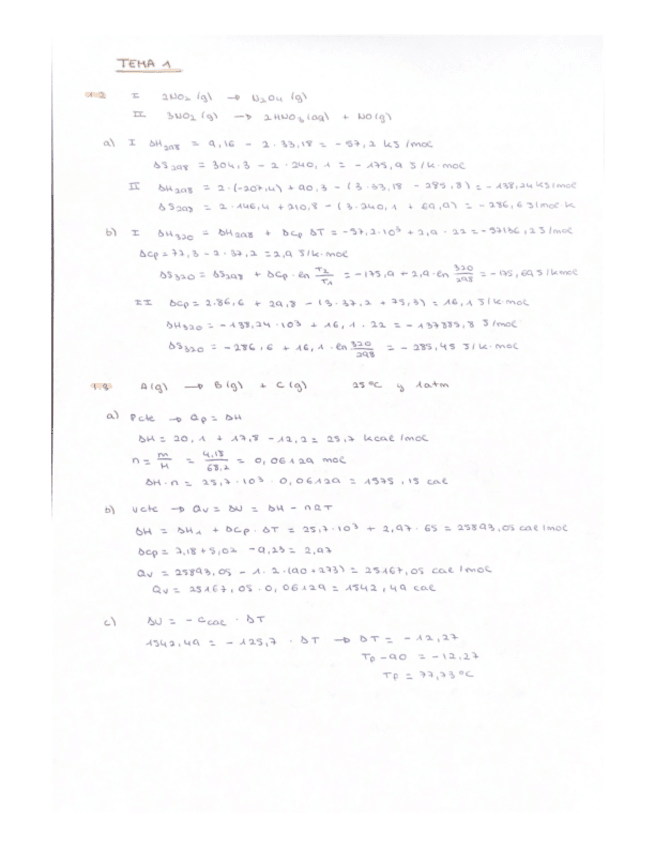 TEMA 1
1.2 I 2NO₂ (g) → N₂O₄ (g)
II 3NO₂ (g) → 2HNO₃ (aq) + NO(g)
a) I ΔH₂₉₈ = 9,16 - 2 · 33,18 = -57,2 kJ/mol
ΔS₂₉₈ = 304,3 - 2 · 240,1 = -175,9 J/k·mol
II ΔH₂₉₈ = 2·(-207,4) + 90,3 - (3·33,18 - 285,8) = -138,24 kJ/mol
ΔS₂₉₈ = 2·146,4 + 210,8 - (3·240,1 + 69,9) = -286,6 J/mol·k
b) I ΔH₃₂₀ = ΔH₂₉₈ + ΔCp ΔT = -57,2·10³ + 2,9 · 22 = -57136,2 J/mol
ΔCp = 77,3 - 2·37,2 = 2,9 J/k·mol
ΔS₃₂₀ = ΔS₂₉₈ + ΔCp · ln T₂/T₁ = -175,9 + 2,9·ln 320/298 = -175,69 J/k·mol
II ΔCp = 2·86,6 + 29,8 - (3·37,2 + 75,3) = 16,1 J/k·mol
ΔH₃₂₀ = -138,24·10³ + 16,1 · 22 = -137885,8 J/mol
ΔS₃₂₀ = -286,6 + 16,1 · ln 320/298 = -285,45 J/k·mol
A(g) → B(g) + C(g) 25ºC y 1atm
a) Pcte → Qp = ΔH
ΔH = 20,1 + 17,8 - 12,2 = 25,7 kcal/mol
n = m/M = 4,18/68,2 = 0,06129 mol
ΔH·n = 25,7·10³ · 0,06129 = 1575,15 cal
b) Vcte → Qv = ΔU = ΔH - nRT
ΔH = ΔH₁ + ΔCp · ΔT = 25,7·10³ + 2,97 · 65 = 25893,05 cal/mol
ΔCp = 7,18 + 5,02 - 9,23 = 2,97
Qv = 25893,05 - 1·2·(90+273) = 25167,05 cal/mol
Qv = 25167,05·0,06129 = 1542,49 cal
c) ΔU = -Ccal · ΔT
1542,49 = -125,7 · ΔT → ΔT = -12,27
TF - 90 = -12,27
TF = 77,73ºC